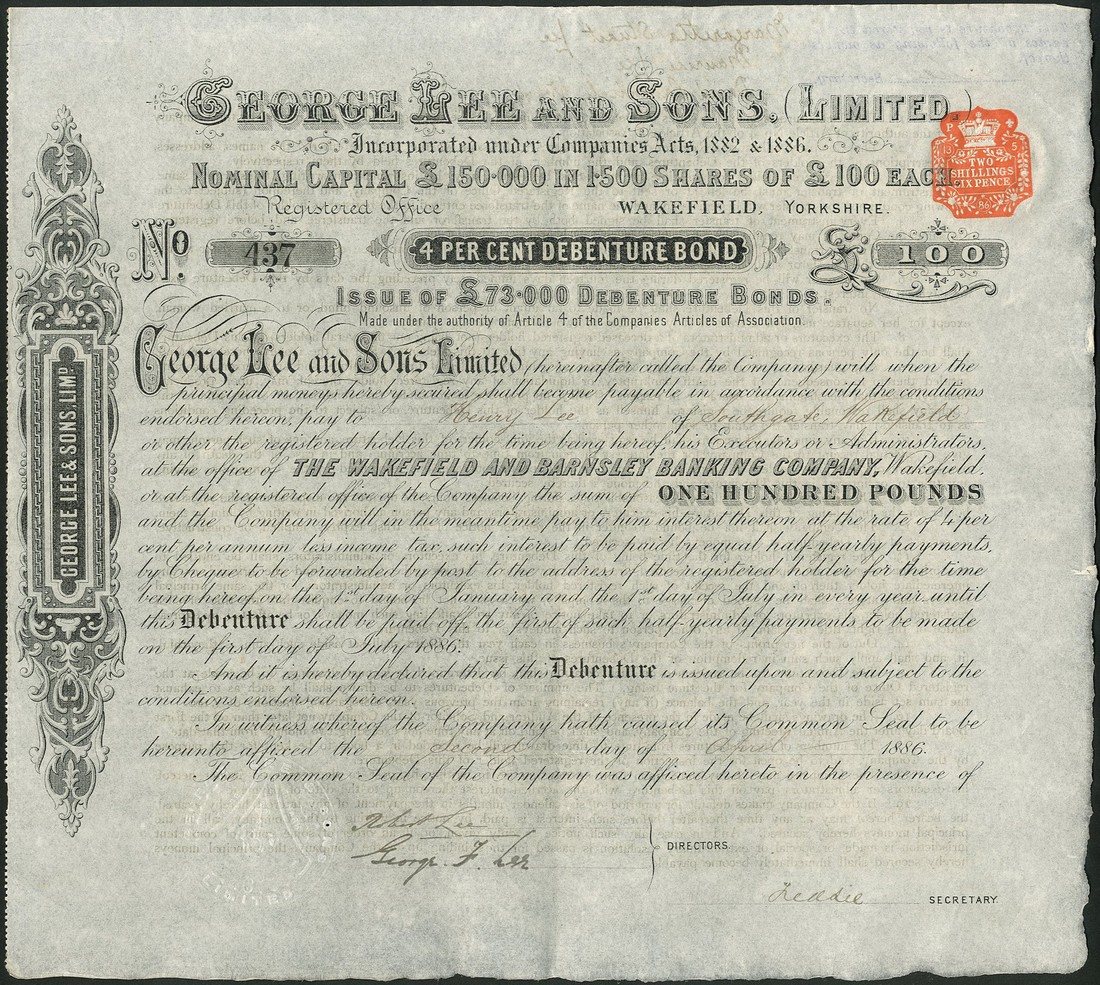 GEORGE LEE AND SONS, (LIMITED.)
Incorporated under Companies Acts, 1882 & 1886.
NOMINAL CAPITAL £150·000 IN 1·500 SHARES OF £100 EACH.
Registered Office WAKEFIELD, YORKSHIRE.
TWO
SHILLINGS
SIX PENCE
86
No. 437
4 PER CENT DEBENTURE BOND
£ 100
ISSUE OF £73·000 DEBENTURE BONDS.
Made under the authority of Article 4 of the Companies Articles of Association.
GEORGE LEE & SONS, LIMD.
George Lee and Sons Limited (hereinafter called the Company) will when the
principal moneys hereby secured shall become payable in accordance with the conditions
endorsed hereon, pay to Henry Lee of Southgate, Wakefield
or other the registered holder for the time being hereof, his Executors or Administrators,
at the office of THE WAKEFIELD AND BARNSLEY BANKING COMPANY, Wakefield,
or at the registered office of the Company the sum of ONE HUNDRED POUNDS
and the Company will in the meantime pay to him interest thereon at the rate of 4 per
cent per annum less income tax, such interest to be paid by equal half-yearly payments,
by Cheque to be forwarded by post to the address of the registered holder for the time
being hereof, on the 1st day of January and the 1st day of July in every year until
this Debenture shall be paid off, the first of such half-yearly payments to be made
on the first day of July 1886.
And it is hereby declared that this Debenture is issued upon and subject to the
conditions endorsed hereon.
In witness whereof the Company hath caused its Common Seal to be
hereunto affixed the Second day of April 1886.
The Common Seal of the Company was affixed hereto in the presence of
George F. Lee
DIRECTORS
SECRETARY.
LIMITED